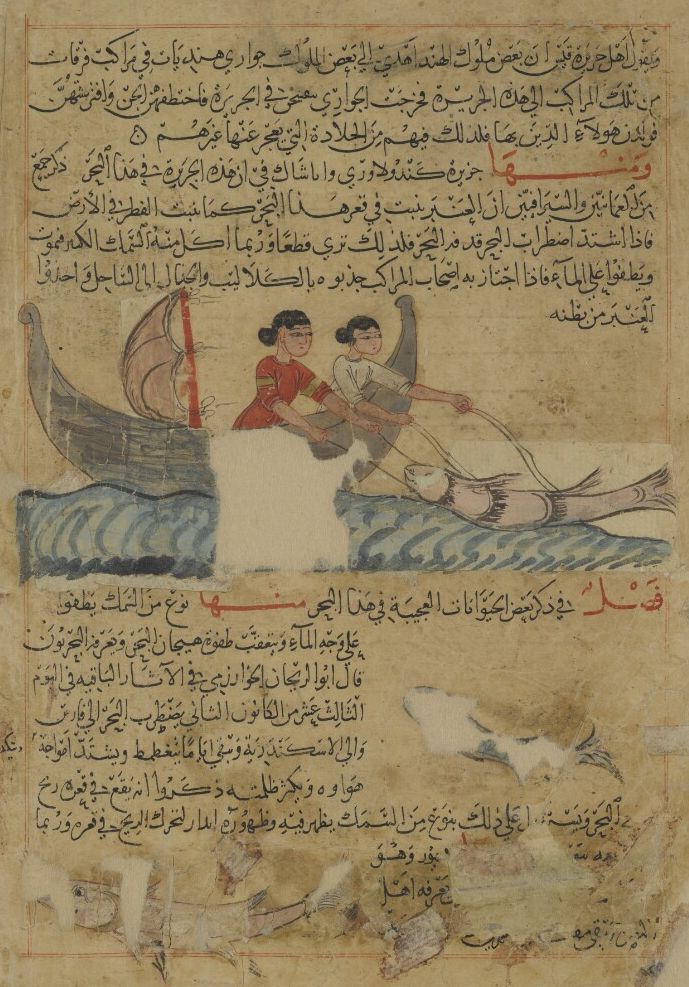 ويقول اهل جزيرة قيس ان بعض ملوك الهند اهدي الي بعض الملوك جواري هنديات في مراكب فرفات
من تلك المراكب الي هذه الجزيرة فخرجت الجواري يتفسحن في الجزيرة فاختطفهن الجن وافترشهن
فولدن هولاء الذين بها فلذلك فيهم من الجلادة التي يعجز عنها غيرهم
ومنها جزيرة كندولاوري واباشاك في ان هذه الجزيرة في هذا البحر ذكر جمع
من العمانيين والسيرافيين ان العنبر ينبت في قعر هذا البحر كما ينبت الفطر في الأرض
فاذا اشتد اضطراب البحر قذفه البحر فلذلك تري قطعا وربما اكل منه السمك الكبير فيموت
ويطفوا علي الماء فاذا اجتاز به اصحاب المراكب جذبوه بالكلاليب والحبال الي الساحل واخذوا
العنبر من بطنه
فصل في ذكر بعض الحيوانات العجيبة في هذا البحر منها نوع من السمك يطفوا
علي وجه الماء ويتعقب طفوه هيجان البحر ويعرفه البحريون
قال ابوا الريحان الخوارزمي في الآثار الباقيه في اليوم
الثالث عشر من الكانون الثاني يضطرب البحر الي فارس
والي الاسكندرية وتبقي اياما يتغطمط ويشتد امواجه
هواوه ويكثر ظلمته ذكروا انه يقع في قعره ريح
البحر علي ذلك بنوع من السمك يظهر فيه وظهوره انذار لتحرك الريح في قعره وربما
وهو
يعرفه اهل